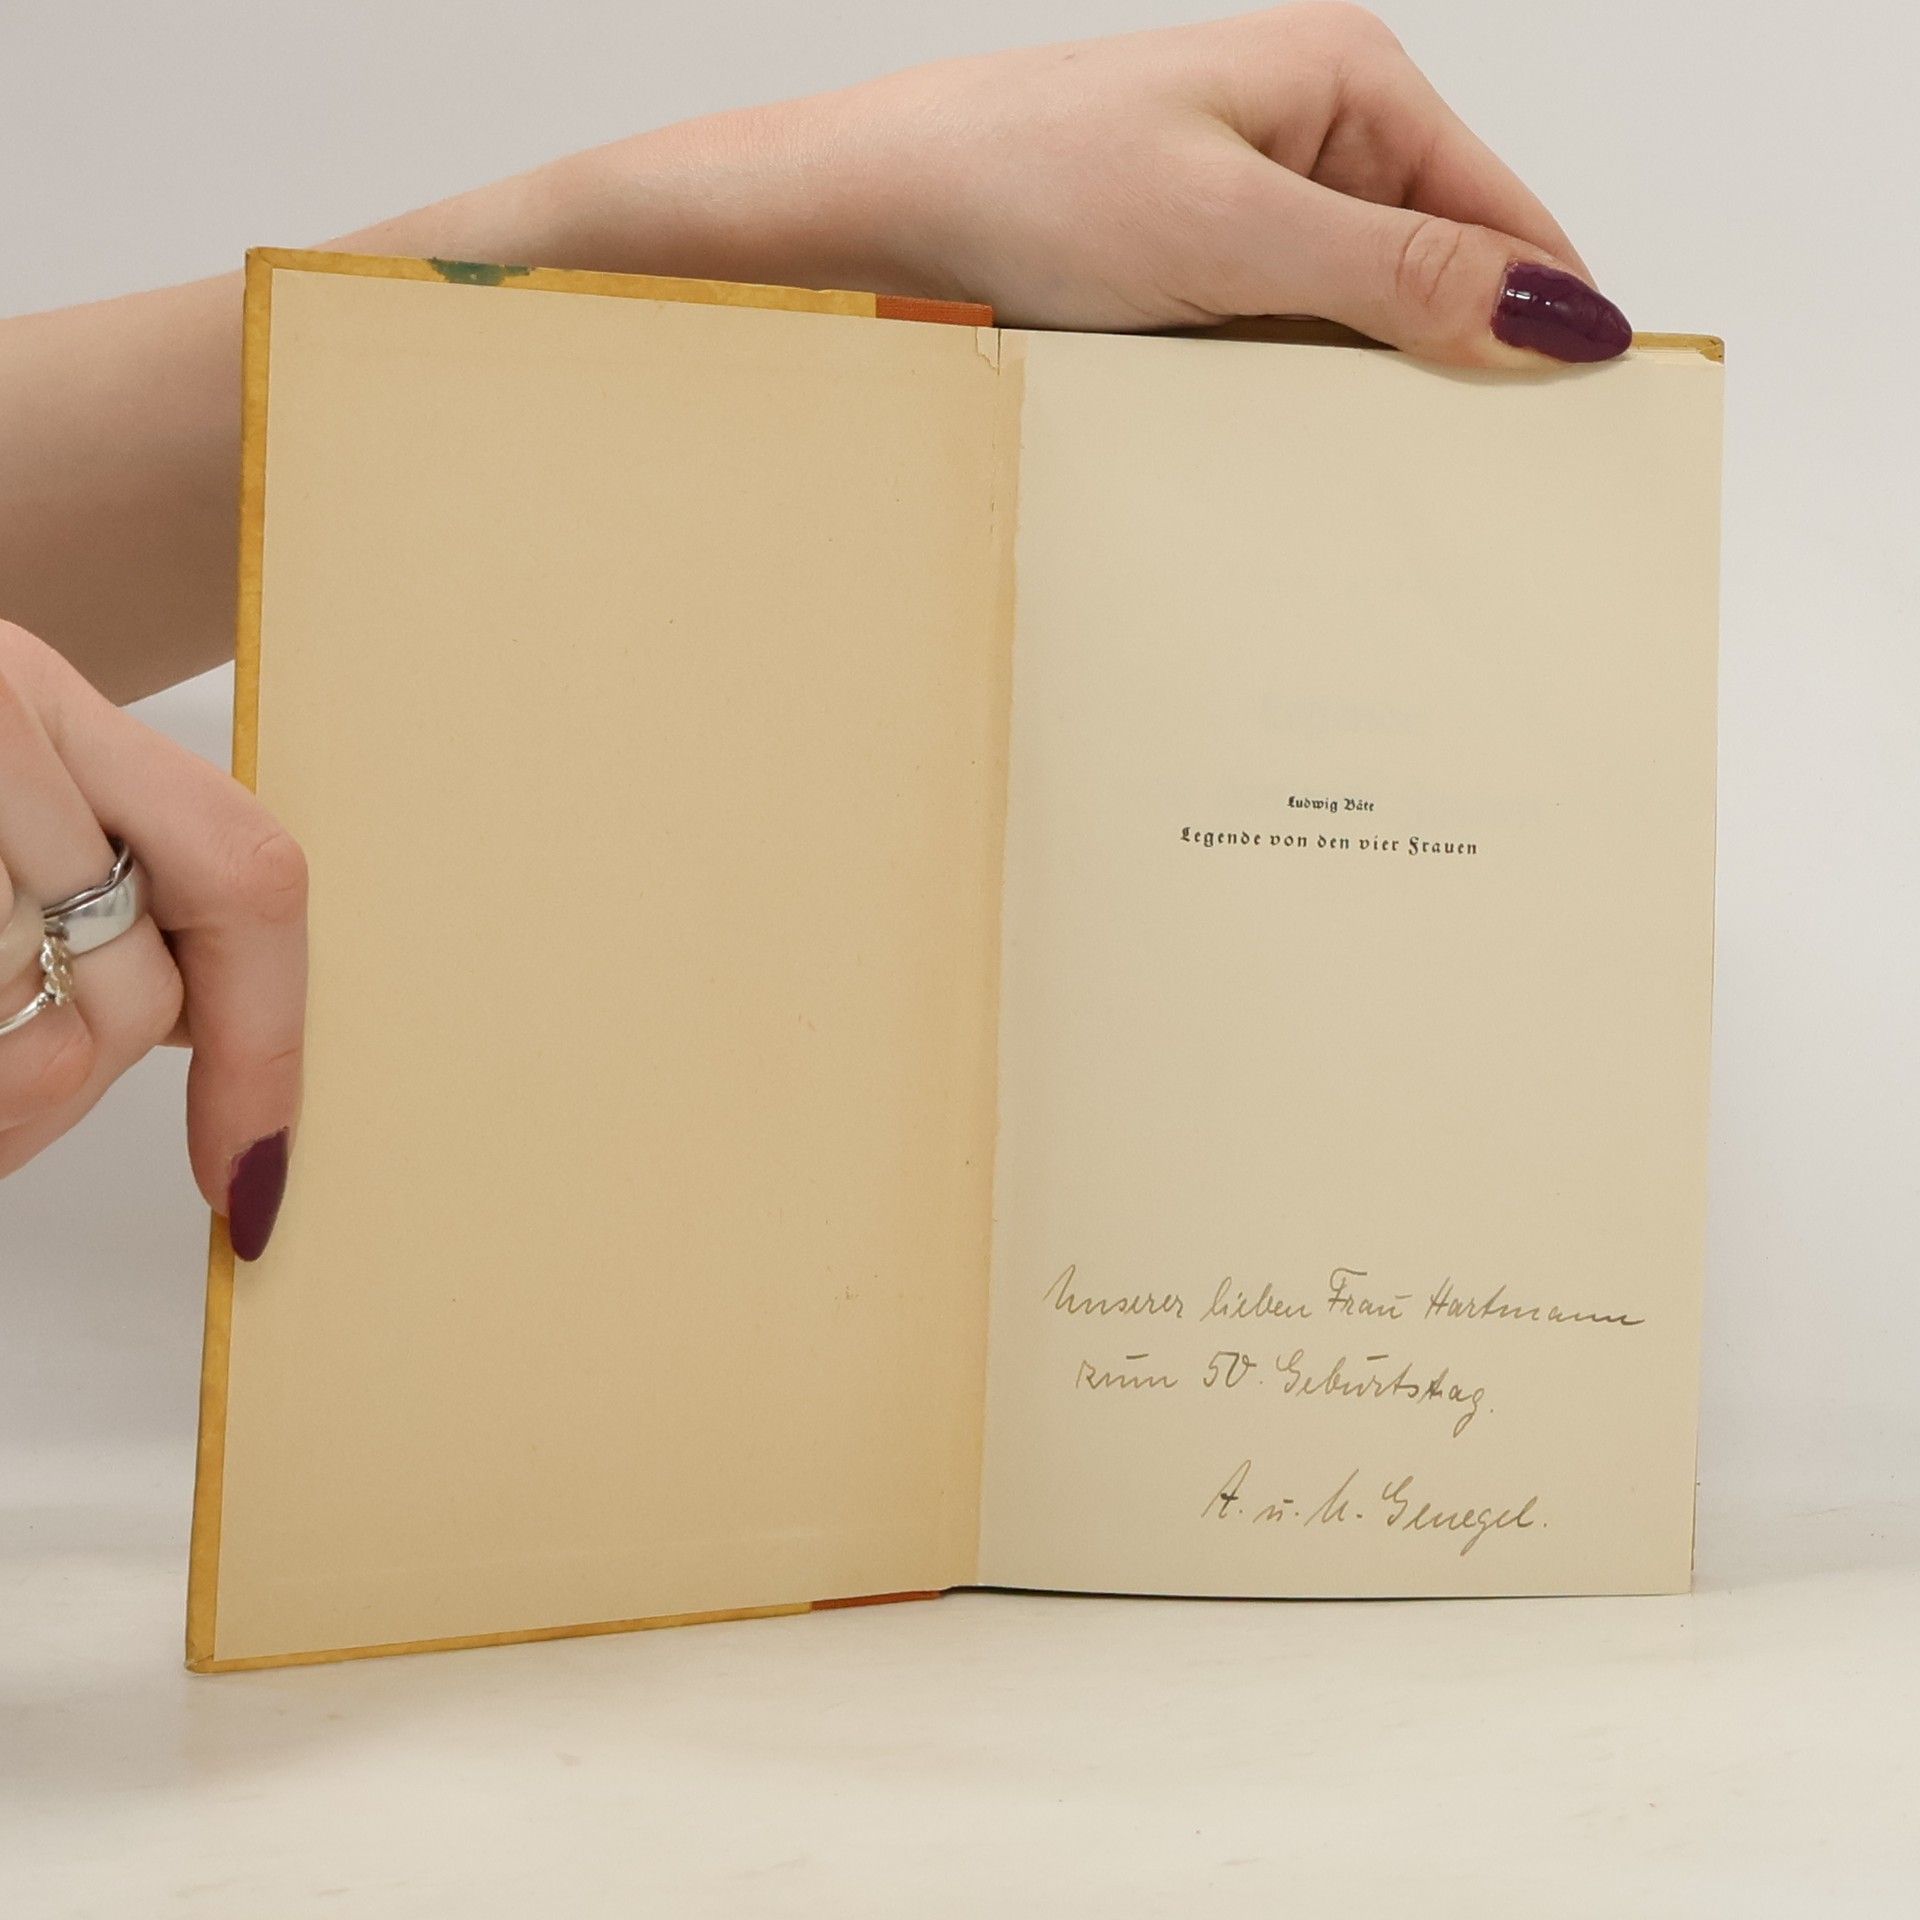 Ludwig Bäte
Legende von den vier Frauen
Unserer lieben Frau Hartmann
zum 50. Geburtstag.
A. u.